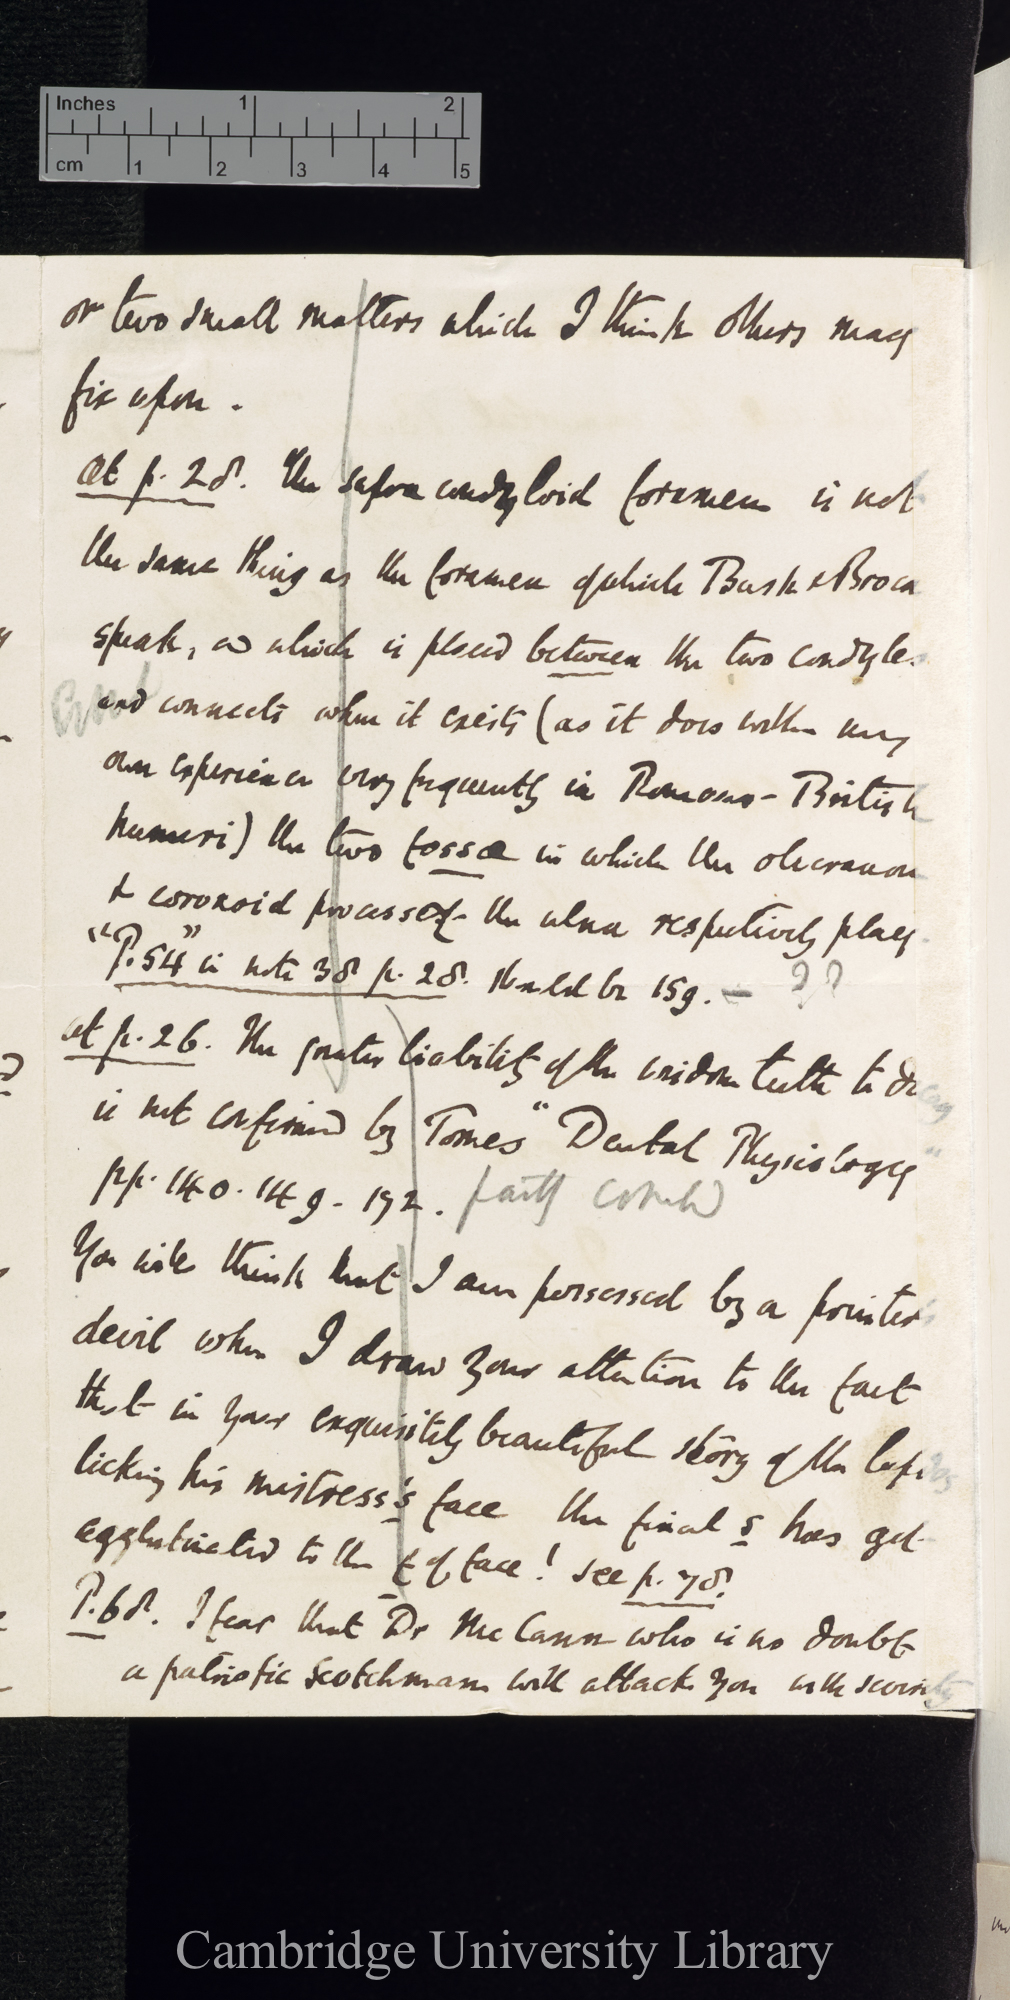 Inches 1 2
cm 1 2 3 4 5
or two small matters which I think others may
fix upon.
At p. 28. The supra condyloid foramen is not
the same thing as the foramen of which Busk & Broca
speak, & which is placed between the two condyles
and connects when it exists (as it does within my
own experience very frequently in Romano-British
humeri) the two fossæ in which the olecranon
& coronoid processes of the ulna respectively play.
"P. 54" in note 38 p. 28. should be 159. – ??
At p. 26. The greater liability of the wisdom teeth to decay
is not confirmed by Tomes "Dental Physiology"
pp. 140. 149. 192.
You will think that I am possessed by a printer's
devil when I draw your attention to the fact
that in your exquisitely beautiful story of the
licking his mistress's face the final s has got
agglutinated to the f of face! see p. 78.
P. 68. I fear that Dr Mc Cann who is no doubt
a patriotic Scotchman will attack you with severity
Cambridge University Library